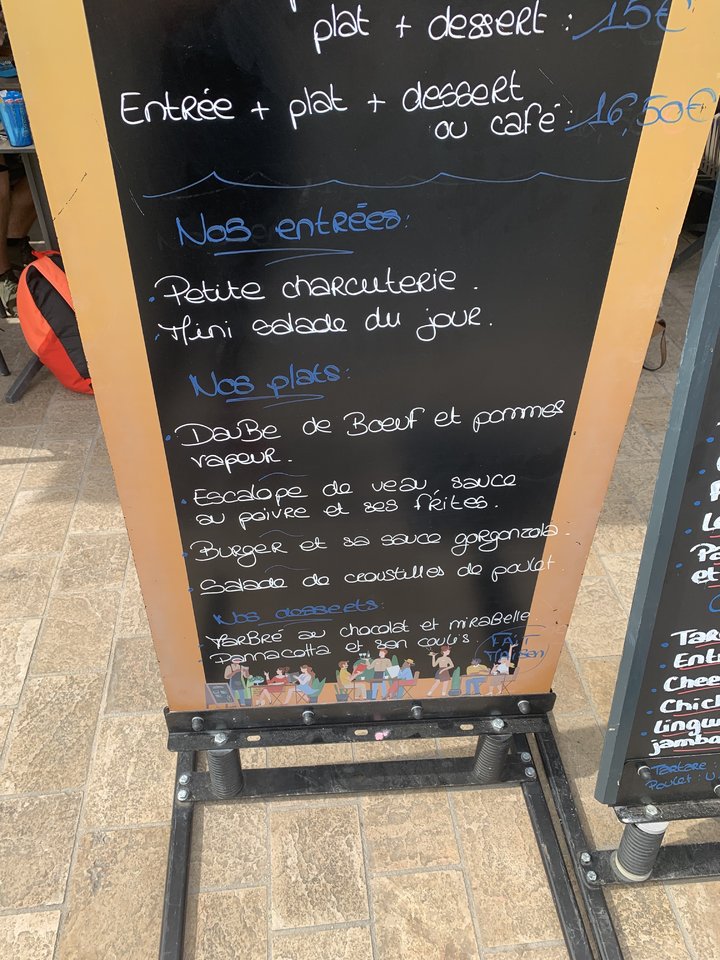 plat + dessert : 15€
Entrée + plat + dessert
ou café : 16,50€
Nos entrées :
Petite charcuterie.
Mini salade du jour.
Nos plats :
Daube de Boeuf et pommes
vapeur.
Escalope de veau, sauce
au poivre et ses frites.
Burger et sa sauce gorgonzola.
Salade de croustilles de poulet.
Nos desserts :
Marbré au chocolat et mirabelle
Pannacotta et son coulis.
FAIT
MAISON
et
Tartare :
Poulet : U